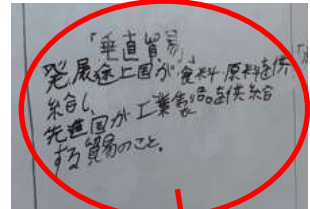 「垂直貿易」
発展途上国が食料・原料を供
給し、
先進国が工業製品を供給
する貿易のこと。